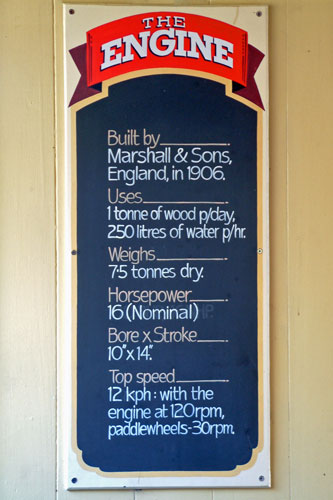 THE
ENGINE
Built by
Marshall & Sons,
England, in 1906.
Uses
1 tonne of wood p/day,
250 litres of water p/hr.
Weighs
7·5 tonnes dry.
Horsepower
16 (Nominal)
Bore x Stroke
10" x 14".
Top speed
12 kph : with the
engine at 120rpm,
paddlewheels-30rpm.